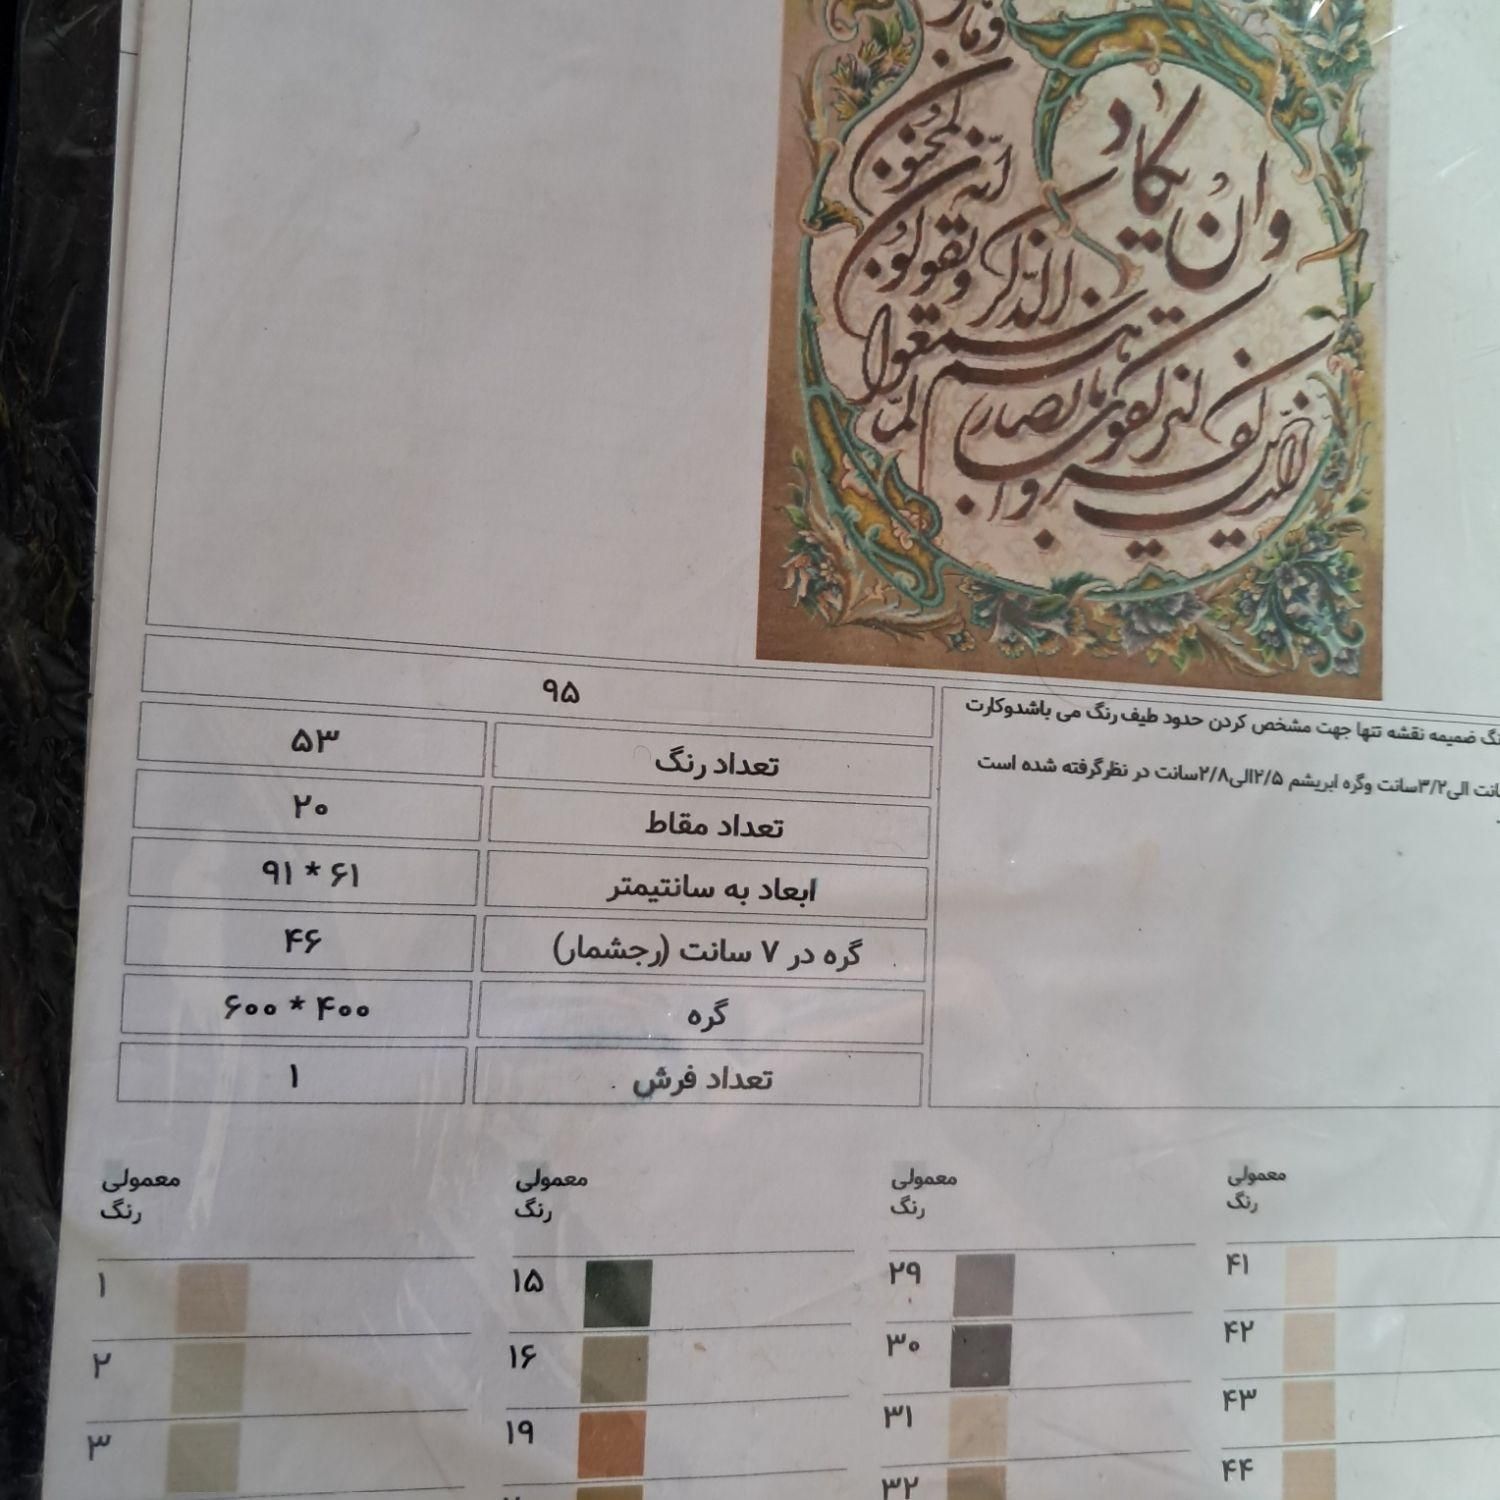 وما
لمجنون
انّه
وان یکاد
ویقولون
الذّکر
سمعوا
لیزلقونک
لمّا
بابصارهم
الذین کفروا
۹۵
تعداد رنگ ۵۳
تعداد مقاط ۲۰
ابعاد به سانتیمتر ۶۱ * ۹۱
گره در ۷ سانت (رجشمار) ۴۶
گره ۴۰۰ * ۶۰۰
تعداد فرش ۱
ضمیمه نقشه تنها جهت مشخص کردن حدود طیف رنگ می باشدوکارت
الی۳/۲سانت وگره ابریشم ۲/۵الی۲/۸سانت در نظرگرفته شده است
معمولی معمولی معمولی معمولی
رنگ رنگ رنگ رنگ
۱ ۱۵ ۲۹ ۴۱
۲ ۱۶ ۳۰ ۴۲
۳ ۱۹ ۳۱ ۴۳
۳۲ ۴۴